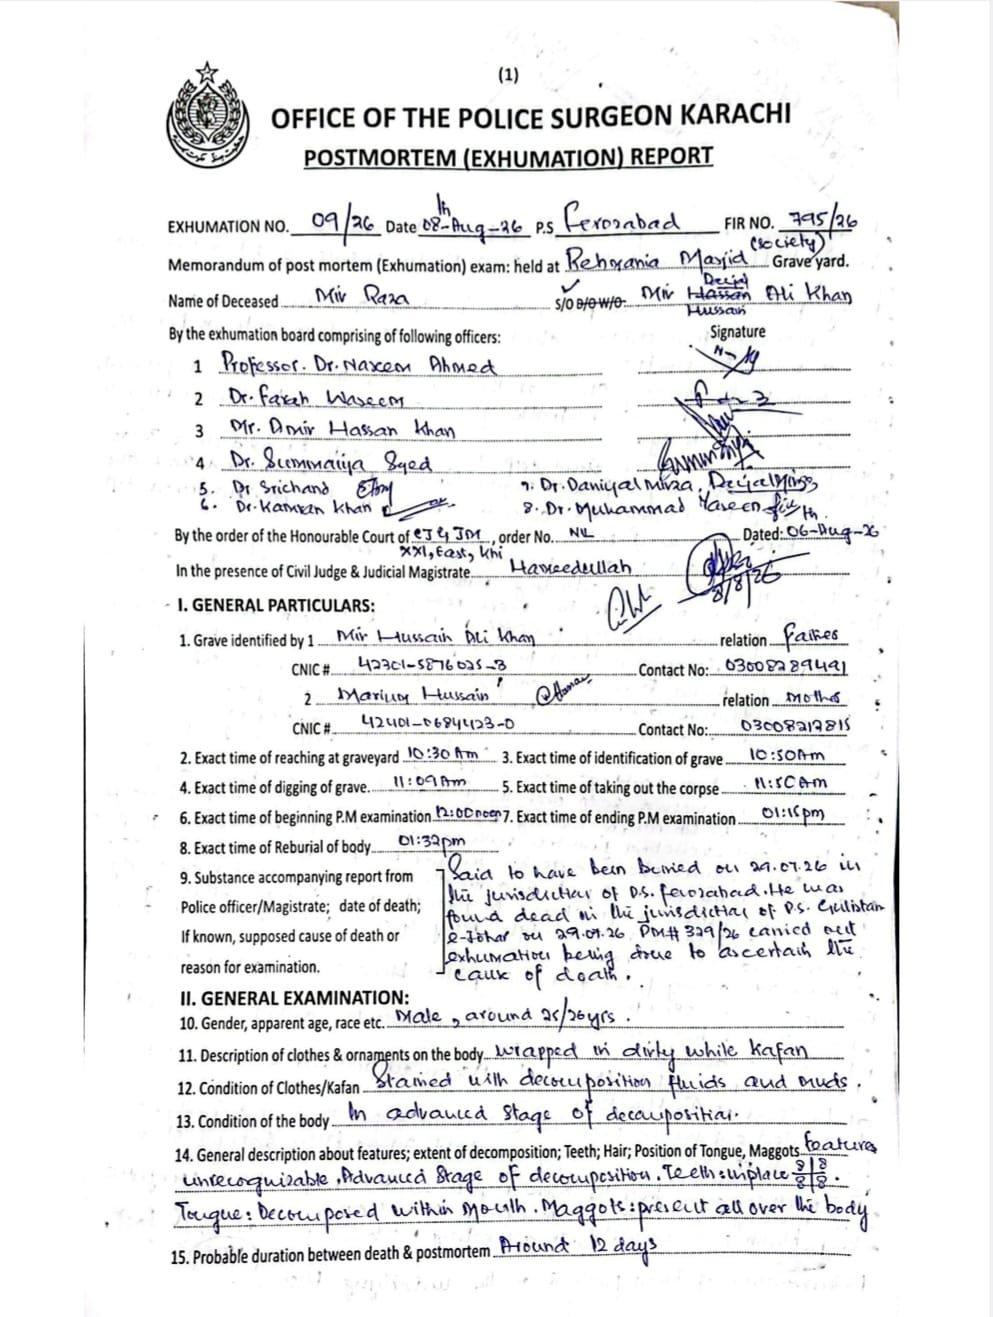 (1)
OFFICE OF THE POLICE SURGEON KARACHI
POSTMORTEM (EXHUMATION) REPORT
EXHUMATION NO. 09/26 Date 08th-Aug-26 P.S Ferozabad FIR NO. 795/26
Memorandum of post mortem (Exhumation) exam: held at Rehmania Masjid (society) Grave yard.
Name of Deceased Mir Raza S/O D/O W/O. Mir Hussain Ali Khan
By the exhumation board comprising of following officers: Signature
1 Professor. Dr. Naseem Ahmed
2 Dr. Farah Waseem
3 Mr. Amir Hassan Khan
4 Dr. Summaiya Syed
5. Dr Srichand 7. Dr. Daniyal Mirza
6. Dr. Kamran Khan 8. Dr. Muhammad
By the order of the Honourable Court of CJ & JM, order No. NIL Dated: 06-Aug-26
XXI, East, Khi
In the presence of Civil Judge & Judicial Magistrate Hameedullah
8/8/26
I. GENERAL PARTICULARS:
1. Grave identified by 1 Mir Hussain Ali Khan relation Father
CNIC # 42301-5876025-3 Contact No: 03008289491
2 Marium Hussain relation Mother
CNIC # 42401-0684423-0 Contact No: 03008212815
2. Exact time of reaching at graveyard 10:30 Am 3. Exact time of identification of grave 10:50Am
4. Exact time of digging of grave. 11:09 Am 5. Exact time of taking out the corpse 11:50 Am
6. Exact time of beginning P.M examination 12:00 noon 7. Exact time of ending P.M examination 01:15pm
8. Exact time of Reburial of body 01:32pm
9. Substance accompanying report from
Police officer/Magistrate; date of death;
If known, supposed cause of death or
reason for examination.
Said to have been buried on 29.07.26 in
the jurisdiction of P.S. Ferozabad. He was
found dead in the jurisdiction of P.S. Gulistan
e-Johar on 29.07.26 PM# 329/26 carried out
exhumation being done to ascertain the
cause of death.
II. GENERAL EXAMINATION:
10. Gender, apparent age, race etc. Male, around 25/26yrs.
11. Description of clothes & ornaments on the body wrapped in dirty white Kafan
12. Condition of Clothes/Kafan Stained with decomposition fluids and muds.
13. Condition of the body In advanced stage of decomposition.
14. General description about features; extent of decomposition; Teeth; Hair; Position of Tongue, Maggots features
unrecognizable. Advanced Stage of decomposition. Teeth: inplace 8|8 8|8.
Tongue: Decomposed within Mouth. Maggots: present all over the body
15. Probable duration between death & postmortem Around 12 days